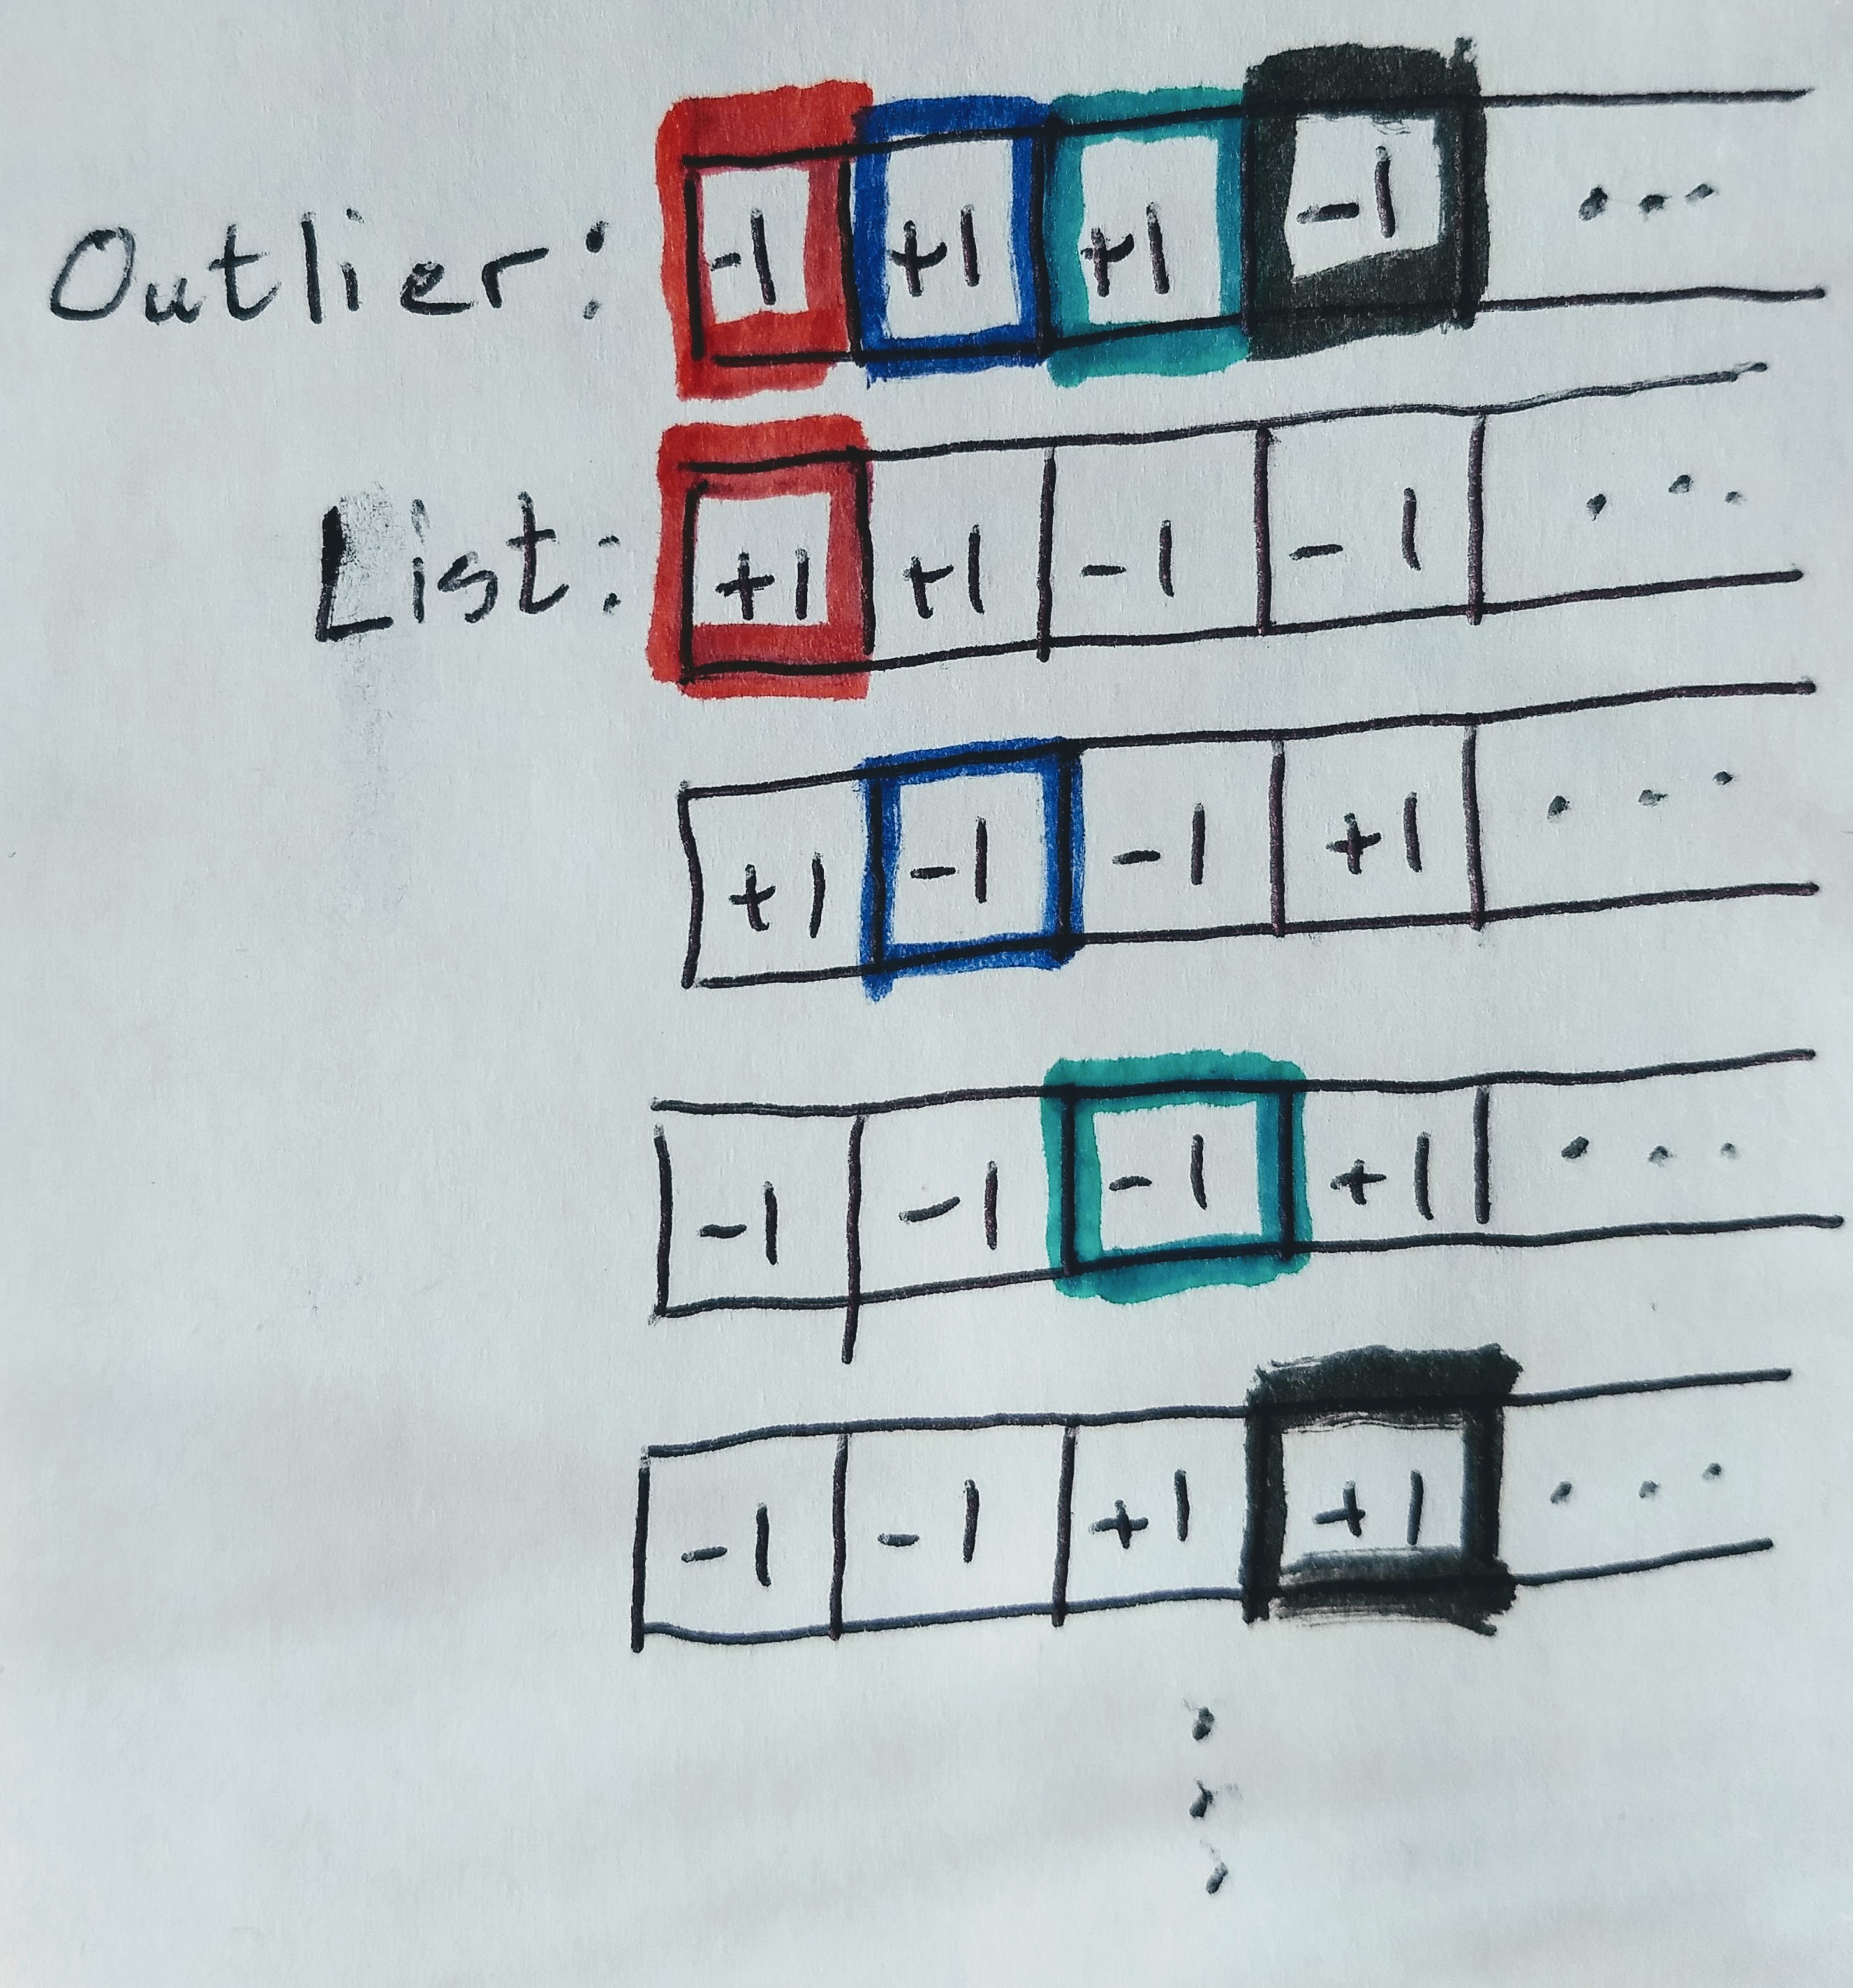 Outlier: -1 +1 +1 -1 ...
List: +1 +1 -1 -1 ...
+1 -1 -1 +1 ...
-1 -1 -1 +1 ...
-1 -1 +1 +1 ...